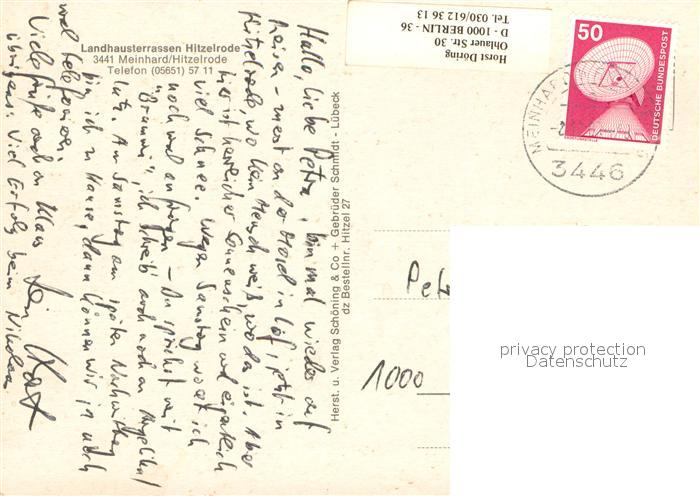 Landhausterrassen Hitzelrode
3441 Meinhard/Hitzelrode
Telefon (05651) 57 11
Horst Döring
Ohlauer Str. 30
D - 1000 BERLIN - 36
Tel. 030/612 36 13
50
DEUTSCHE BUNDESPOST
MEINHARD
3446
Hallo, liebe Petra, bin mal wieder auf
Reisen - zuerst an der Mosel in Löf, jetzt in
Hitzelrode, wo kein Mensch weiß, wo das ist. Aber
hier ist herrlicher Sonnenschein und eigentlich
viel Schnee. Wegen Samstag wollt ich
noch mal anfragen - Du sprichst mit
ich schreib auch noch an Angelika
Am Samstag am späten Nachmittag
bin ich zu Hause, dann können wir ja noch
mal telefonieren.
Viele Grüße auch an Klaus
Dein Horst
übrigens: Viel Erfolg beim Nikolaus
Herst. u. Verlag Schöning & Co + Gebrüder Schmidt - Lübeck
dz Bestellnr. Hitzel 27
Pet
1000
privacy protection
Datenschutz